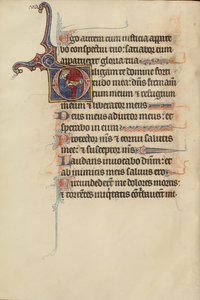 Ego autem cum iusticia appare
bo conspectui tuo: saciabor cum
apparuerit gloria tua
Diligam te domine forti
tudo mea: dñs
meum et refugium
meum et liberator meus
Deus meus adiutor meus: et
sperabo in eum
Protector ms et cornu salutis
mee: et susceptor ms
Laudans invocabo dñm: et
ab inimicis meis salvus ero
Circundederunt me dolores mortis:
et torrentes iniquitatis